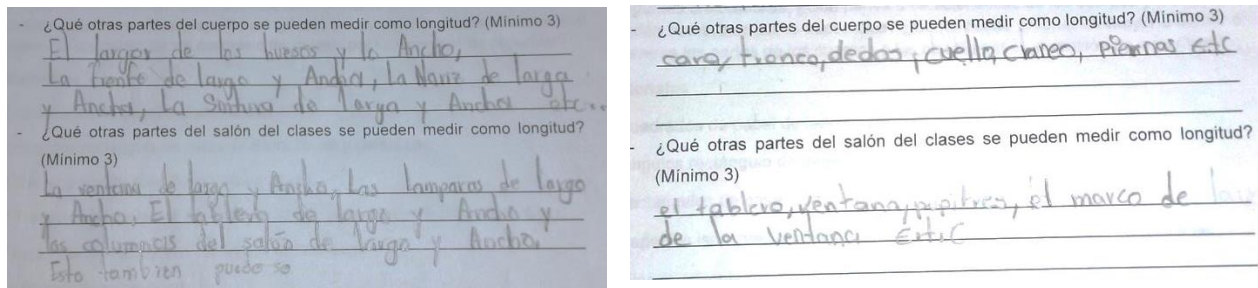 - ¿Qué otras partes del cuerpo se pueden medir como longitud? (Mínimo 3)
El largor de los huesos y lo Ancho,
La frente de largo y Ancha, la Nariz de larga
y Ancha, La Sintura de larga y Ancha etc...
- ¿Qué otras partes del salón del clases se pueden medir como longitud?
(Mínimo 3)
La ventana de largo y Ancho, Las lamparas de largo
y Ancho, El tablero de largo y Ancho y
las columnas del salón de largo y Ancho,
Esto tambien puede se
- ¿Qué otras partes del cuerpo se pueden medir como longitud? (Mínimo 3)
cara, tronco, dedos, cuello, craneo, piernas etc
- ¿Qué otras partes del salón del clases se pueden medir como longitud?
(Mínimo 3)
el tablero, ventana, pupitres, el marco de
de la ventana